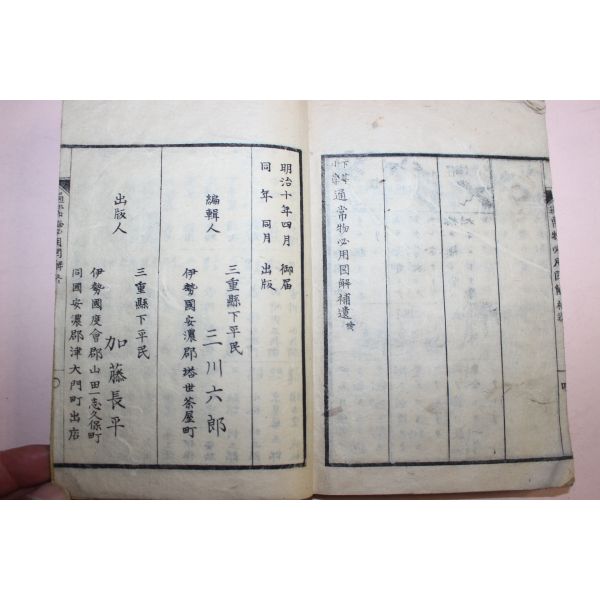 下等小学 通常物必用図解補遺 終
明治十年四月 御届
同年同月 出版
三重縣下平民
編輯人 三川六郎
伊勢國安濃郡塔世茶屋町
三重縣下平民
出版人 加藤長平
伊勢國度會郡山田一志久保町
同國安濃郡津大門町出店